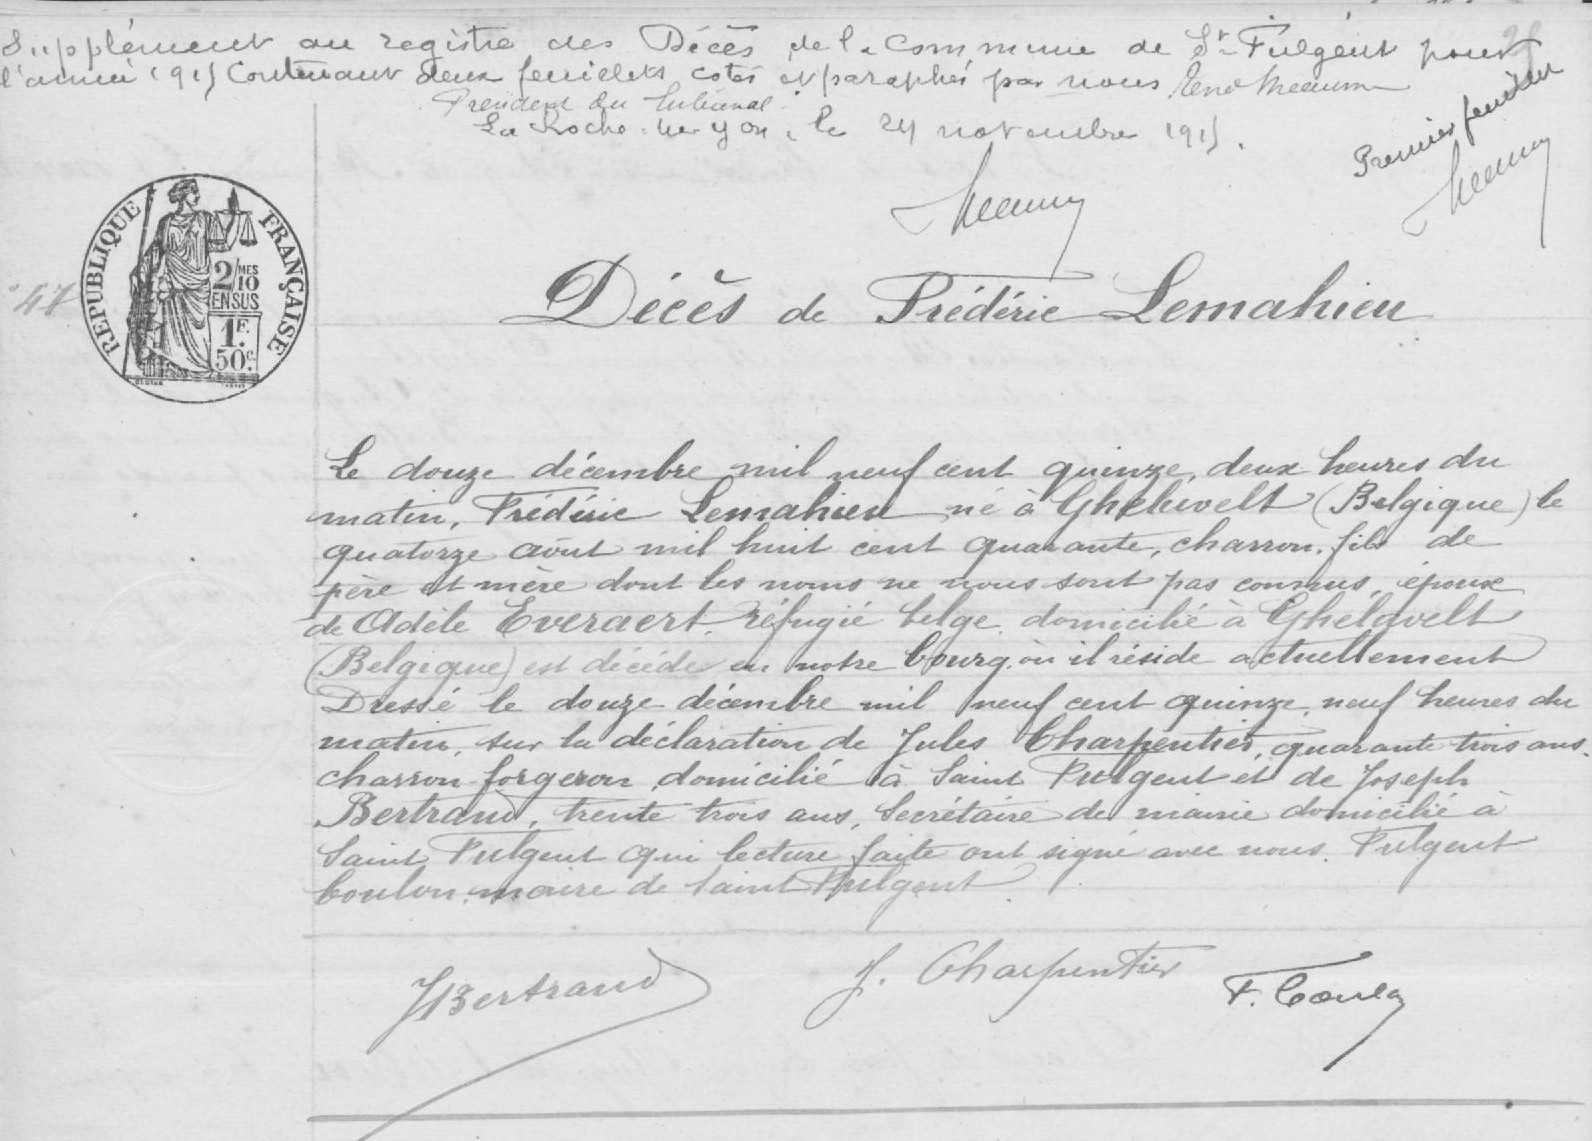 Supplément au registre des Décès de la commune de St Fulgent pour
l'année 1915 Contenant deux feuillets cotés et paraphés par nous René
Président du Tribunal.
La Roche-sur-Yon, le 24 novembre 1915.
Premier feuillet
47
REPUBLIQUE FRANÇAISE
2/10 MES
EN SUS
1F.
50c.
Décès de Frédéric Lemahieu
Le douze décembre mil neuf cent quinze, deux heures du
matin, Frédéric Lemahieu né à Gheluvelt (Belgique) le
quatorze août mil huit cent quarante, charron, fils de
père et mère dont les noms ne nous sont pas connus, époux
de Adèle Everaert, réfugié belge domicilié à Ghelavelt
(Belgique) est décédé en notre bourg où il réside actuellement
Dressé le douze décembre mil neuf cent quinze, neuf heures du
matin, sur la déclaration de Jules Charpentier, quarante trois ans,
charron forgeron domicilié à Saint Fulgent et de Joseph
Bertrand, trente trois ans, Secrétaire de mairie domicilié à
Saint Fulgent qui lecture faite ont signé avec nous Fulgent
Coulon, maire de Saint Fulgent
JBertrand
J. Charpentier
F. Coulon